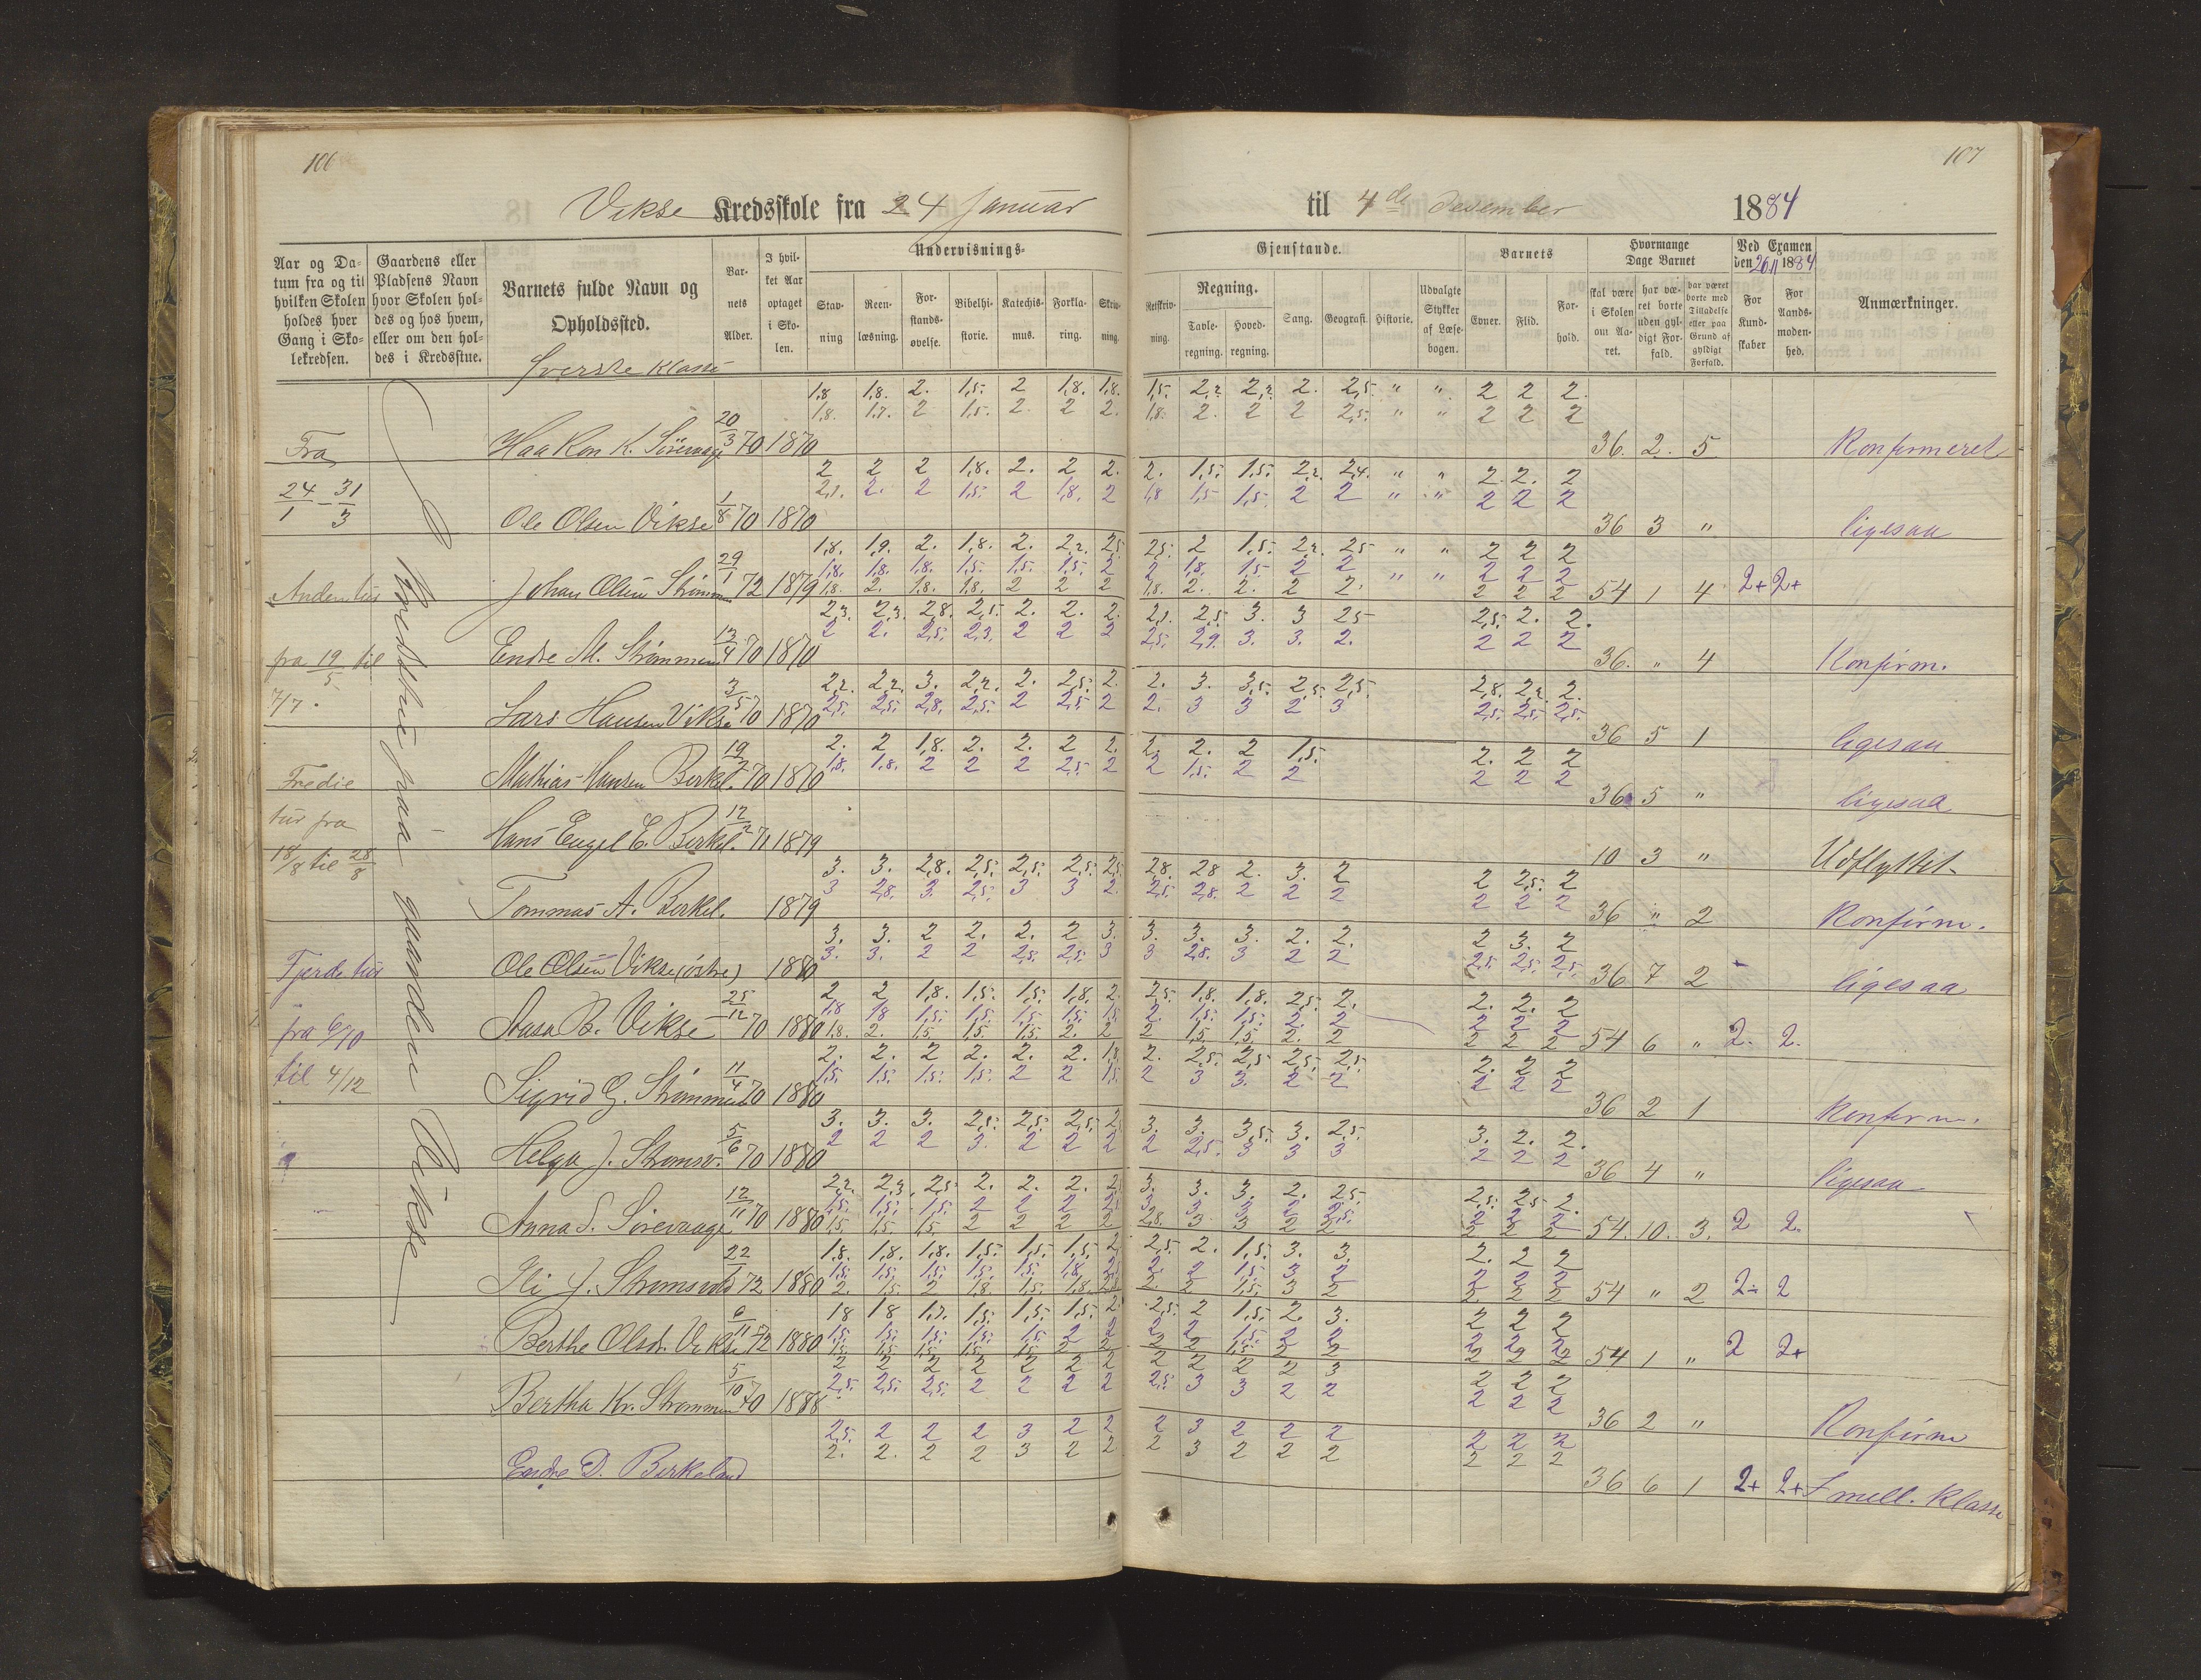 106
107
Vikse Kredsskole fra 24 Januar
til 4de Desember 1884
Aar og Datum fra og til hvilken Skolen holdes hver Gang i Skolekredsen.
Gaardens eller Pladsens Navn hvor Skolen holdes og hos hvem, eller om den holdes i Kredsstue.
Barnets fulde Navn og Opholdssted.
Barnets Alder.
I hvilket Aar optaget i Skolen.
Undervisnings-
Stavning
Reenlæsning.
Forstandsøvelse.
Bibelhistorie.
Katechismus.
Forklaring.
Skrivning.
Gjenstande.
Retskrivning.
Regning.
Tavleregning.
Hovedregning.
Sang.
Geografi.
Historie.
Udvalgte Stykker af Læsebogen.
Barnets
Evner.
Flid.
Forhold.
Hvormange Dage Barnet
skal være i Skolen om Aaret.
har været borte uden gyldigt Forfald.
har været borte med Tilladelse eller paa Grund af gyldigt Forfald.
Ved Examen den 26/11 1884
For Kundskaber
For Aandsmodenhed.
Anmærkninger.
Øverste Klasse
Fra
24/1 - 31/3
Anden tur
fra 19/5 til
7/7.
Tredie
tur fra
18/8 til 28/8
Fjerde tur
fra 6/10
til 4/12
Kredsstue paa gaarden Vikse
1,8 1,8. 2. 1,5. 2 1,8. 1,8. 1,5. 2,2 2,2. 2. 2,5. " " 2 2 2.
1,8. 1,7. 2 1,5. 2. 2 2. 1,8. 2. 2 2 2,5. " " 2 2 2
Haakon K. Sørevaage 20/3 70 1870 36. 2. 5. Konfirmeret
2 2 2 1,8. 2. 2 2. 2. 1,5. 1,5. 2,2. 2,4. " " 2. 2. 2
2,1. 2. 2 1,5. 2 1,8. 2 1,8 1,5 1,5. 2 2 " " 2 2 2
Ole Olsen Vikse 1/8 70 1870 36 3 " ligesaa
1,8. 1,9. 2. 1,8. 2. 2,2. 2,5 2,5. 2 1,5. 2,2. 2,5 " " 2 2 2
1,8. 1,8. 1,8. 1,5. 1,5. 1,5. 2 2 1,8. 1,5. 2 2 " " 2 2 2
Johan Olsen Strømmen 29/1 72 1879 1,8. 2. 1,8. 1,8. 2 2 2 1,8. 2. 2. 2 2. 2 2 2 54 1 4 2+ 2+
2,3. 2,3. 2,8. 2,5. 2. 2. 2. 2,1. 2,5. 3. 3 2,5 2,5. 2. 2.
2 2. 2,5. 2,3. 2 2 2 2,5. 2,9. 3. 3. 2. 2 2 2
Endre M. Strømmen 13/4 70 1870 36. " 4 Konfirm.
2,2. 2,2. 3. 2,2. 2. 2,5. 2. 2. 3. 3,5. 2,5. 2,5. 2,8. 2,2. 2.
2,5. 2,5. 2,8. 2,5. 2 2,5 2 2. 3 3 2 3 2,5. 2,5. 2,5.
Lars Hansen Vikse 3/5 70 1870 36 5 1 ligesaa
2. 2 1,8. 2. 2. 2 2. 2. 2. 2 1,5. 2. 2 2
1,8. 1,8. 2 2 2 2,5 2 2 1,5. 2 2 2 2 2
Mathias Hansen Birkel. 19/2 70 1870 36 5 " ligesaa
Hans Engel E. Birkel. 12/2 71 1879 10 3 " Udflyttet.
3. 3. 2,8. 2,5. 2,5. 2,5. 2,5. 2,8. 2,8 2. 3. 2 2 2,5. 2
3 2,8. 3. 2,5. 3 3 2. 2,5. 2,8. 2 2 2 2 2 2
Tommas A. Birkel. 1879 36 " 2 Konfirm.
3. 3. 2 2. 2. 2 3. 3. 3. 3. 2. 2. 2 3. 2
3. 3. 2 2 2,5. 2,5. 3 3 2,8. 3 2 2 2,5. 2,5. 2,5.
Ole Olsen Vikse (østre) 1880 36 7 2 ligesaa
2 2 1,8. 1,5. 1,5. 1,8. 2. 2,5. 1,8. 1,8. 2,5. 2. 2. 2. 2
1,8 1,8 1,5. 1,5. 1,5. 1,5. 1,5 2. 1,5. 1,5. 2. 2 2 2 2
Aasa B. Vikse 25/12 70 1880 1,8. 2. 1,5 1,5. 1,5 2. 2 2 1,5. 1,5. 2. 2 2 2 2 54 6 " 2. 2.
2. 2. 2 2. 2. 2. 1,8. 2. 2,5. 2,5 2,5. 2,5. 2. 2 2
1,5. 1,5. 1,5. 1,5. 2 2 1,5. 2 3 3. 2 2 2 2 2
Sigrid G. Strømmen 11/4 70 1880 36 2 1 Konfirm.
3. 3. 3. 2,5. 2,5. 2,5. 2 3. 3. 3,5. 3. 2,5. 3. 2. 2.
2 2 2 3. 2 2 2 2 2,5. 3 3 3 2 2 2
Helga J. Strømsv. 5/6 70 1880 36 4 " ligesaa
2,2. 2,3. 2,5. 2. 2. 2. 2 3. 3. 3. 2. 2,5. 2,5. 2,5 2.
Anna S. Sørevaage 12/11 70 1880 1,5. 1,5. 1,5. 2 2 2 2 2,8. 3 3 2 2 2 2 2 54. 10. 3. 2 2.
1,8. 1,8. 1,8. 1,5. 1,5. 1,5. 2 2,5. 2. 1,5. 3. 3. 2. 2 2
Ili J. Strømsvold 22/1 72 1880 2. 1,5. 2 1,8. 1,5. 1,8. 2 2. 2 1,5. 3 2 2 2 2 54 " 2 2- 2
1,8 1,8 1,7. 1,5. 1,5. 1,5. 2 2,5. 2 1,5. 2. 3. 2 2 2
Berthe Olsd. Vikse 6/11 72 1880 1,5. 1,5. 1,5. 1,5. 1,5. 2 2 2 2 1,5. 2 2 2 2 2 54 1 " 2 2+
2 2 2 2 2 2 2 2 2 2 2 3 2 2 2
2,5. 2,5. 2,5. 2 2 2 2 2,5. 3 3 2 2 2 2 2
Bertha Kr. Strømmen 5/10 70 1888 36 2 " Konfirm
2,5. 2 2 2 3 2 2 2 3 2 2 2 2 2 2
2. 2. 2 2 3 2 2 2 3 2 2 2 2 2 2
Endre D. Birkeland 36 6 1 2+ 2+ I mell. Klasse